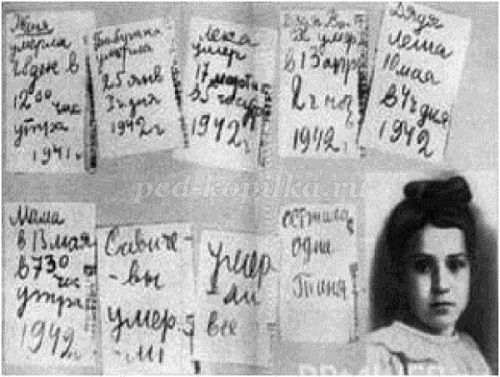 Женя
умерла
28 дек в
12 00 час
утра
1941 г.
Бабушка
умерла
25 янв
3 ч дня
1942 г
Лека
умер
17 марта
в 5 час утр
1942 г
Дядя Вася
умер
в 13 апр
2 ч ноч
1942 г
Дядя
Леша
10 мая
в 4 ч дня
1942
Мама
в 13 мая
в 7 30
час
утра
1942 г
Савиче-
-вы
умер.
-ли
умер
-ли
все
осталась
одна
Таня
ped-kopilka.ru